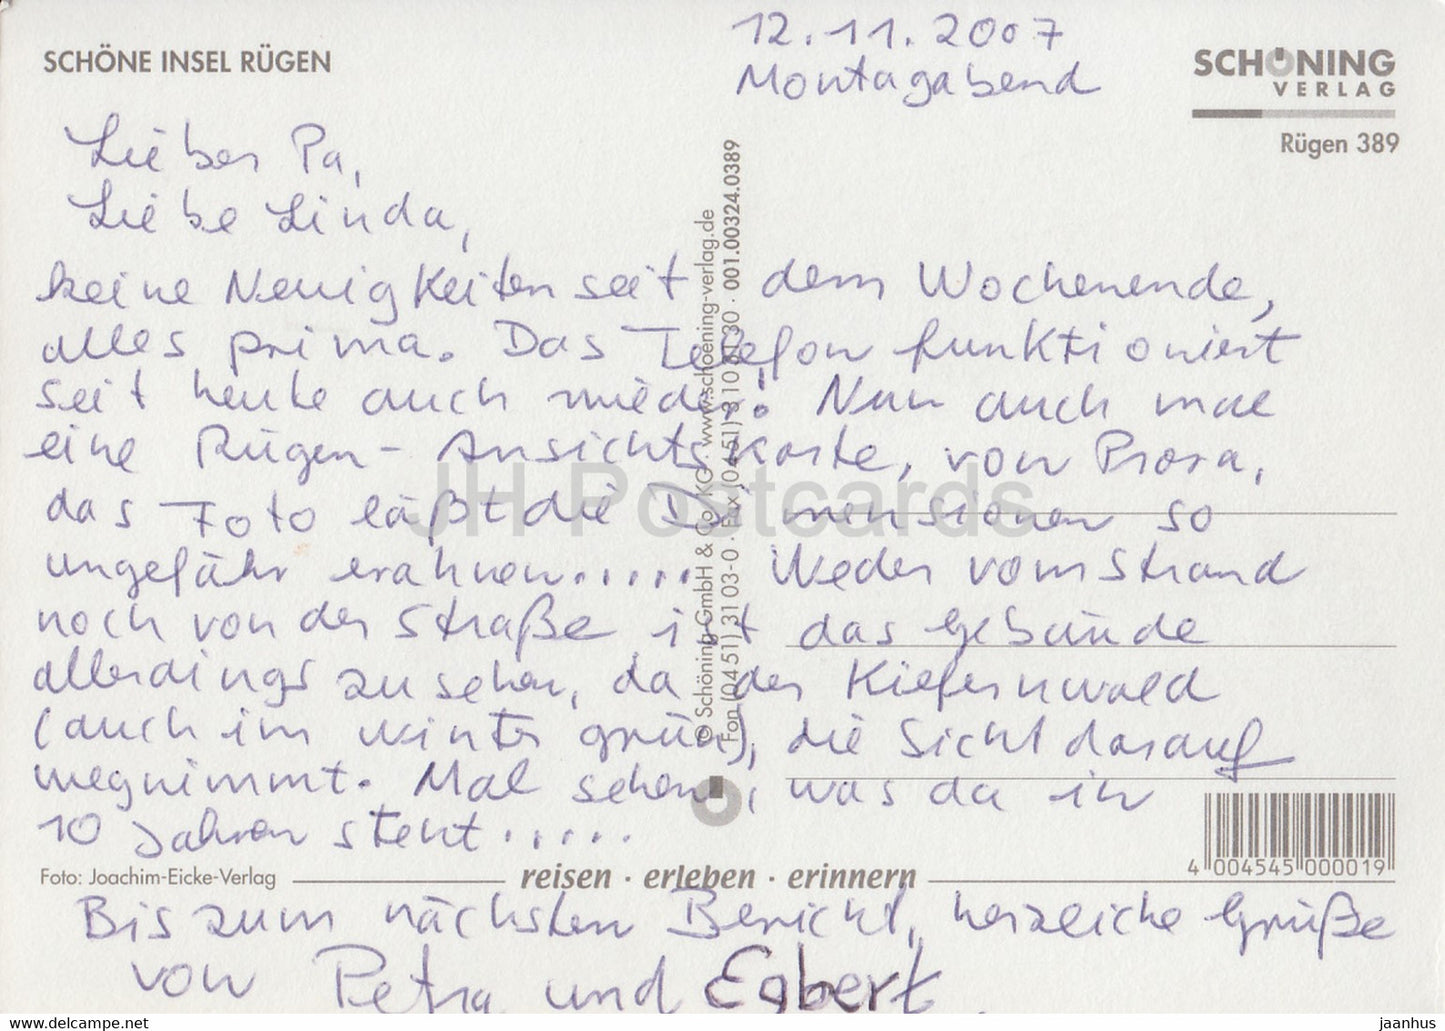 SCHÖNE INSEL RÜGEN
12.11.2007
Montagabend
SCHÖNING
VERLAG
Rügen 389
Lieber Pa,
Liebe Linda,
keine Neuigkeiten seit dem Wochenende,
alles prima. Das Telefon funktioniert
seit heute auch wieder! Nun auch mal
eine Rügen-Ansichtskarte, von Prora,
das Foto läßt die Dimensionen so
ungefähr erahnen..... Weder vom Strand
noch von der Straße ist das Gebäude
allerdings zu sehen, da der Kiefernwald
(auch im Winter grün), die Sicht darauf
wegnimmt. Mal sehen, was da in
10 Jahren steht.....
Foto: Joachim-Eicke-Verlag
reisen · erleben · erinnern
4 004545 000019
Bis zum nächsten Bericht, herzliche Grüße
von Petra und Egbert.
© Schöning GmbH & Co. KG · www.schoening-verlag.de
Fon (04 51) 31 03-0 · Fax (04 51) 3 10 81 30 · 001.00324.0389
JH Postcards
www.delcampe.net
jaanhus